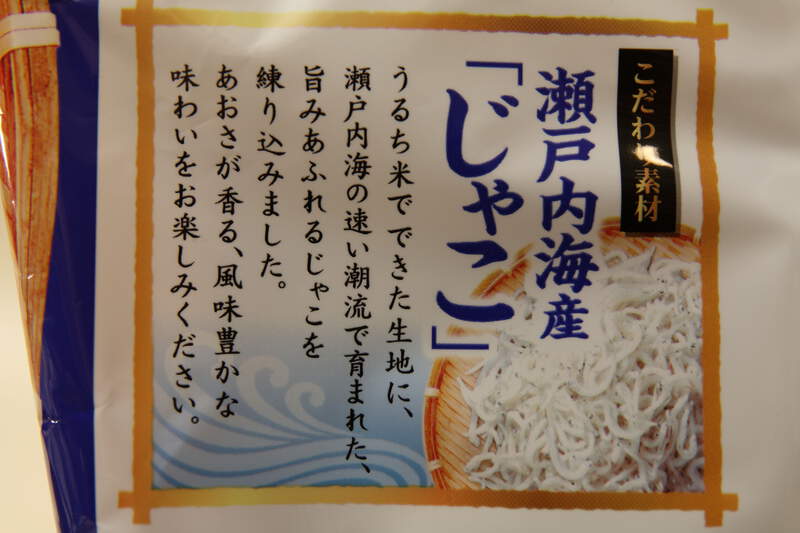 こだわり素材
瀬戸内海産
「じゃこ」
うるち米でできた生地に、
瀬戸内海の速い潮流で育まれた、
旨みあふれるじゃこを
練り込みました。
あおさが香る、風味豊かな
味わいをお楽しみください。